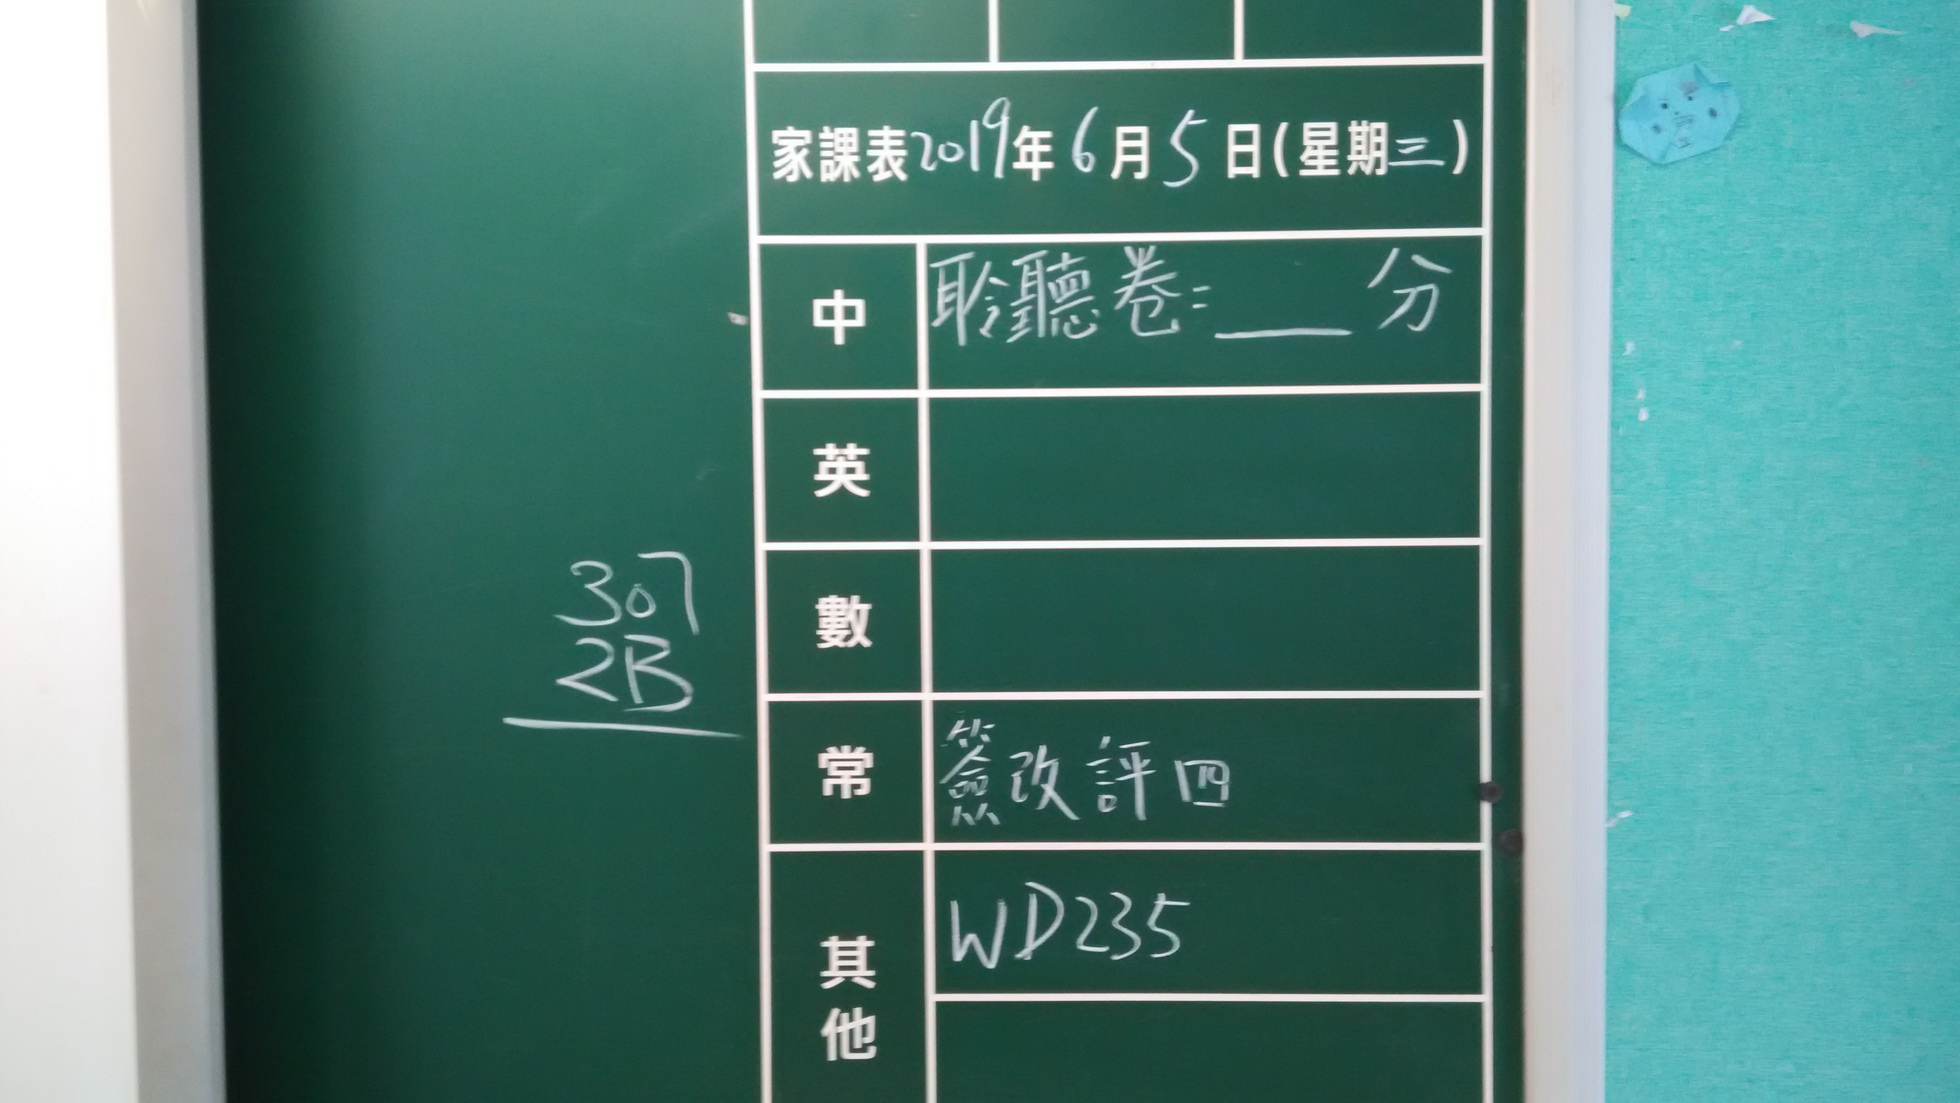 家課表2019年6月5日(星期三)
中 聆聽卷:___分
英
307
數
2B
常 簽改評四
WD235
其他